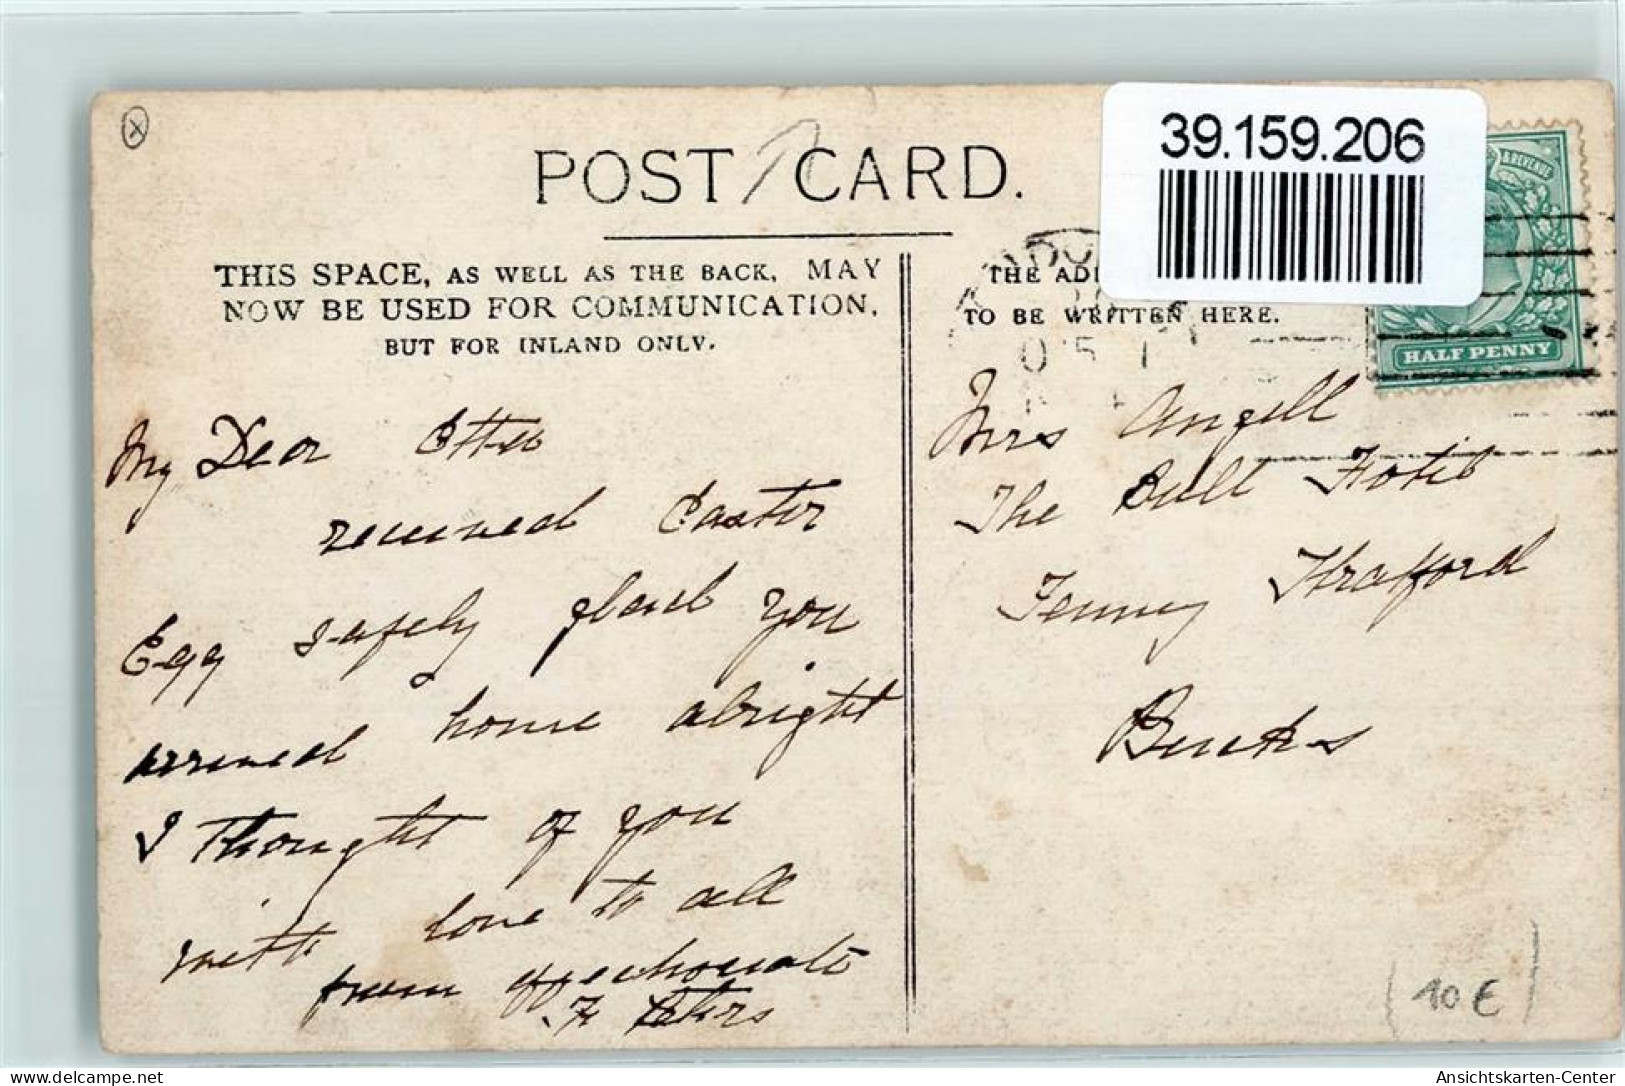 39.159.206
POST CARD.
THIS SPACE, AS WELL AS THE BACK, MAY
NOW BE USED FOR COMMUNICATION,
BUT FOR INLAND ONLY.
TO BE WRITTEN HERE.
HALF PENNY
My Dear
received Easter
Egg safely glad you
arrived home alright
I thought of you
with love to all
from affectionate
F Peters
Mrs Angell
The Bull Hotel
Fenny Stratford
Bucks
10 €
Ansichtskarten-Center